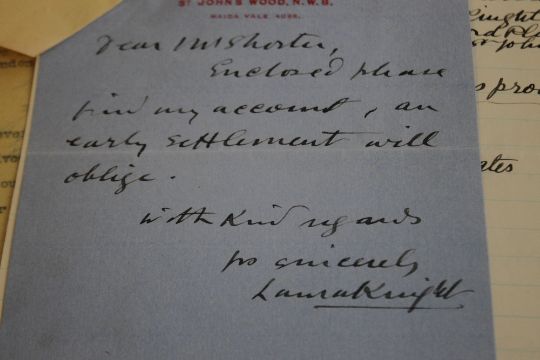 ST JOHN'S WOOD, N.W.8.
MAIDA VALE
Dear Mr Shorter,
Enclosed please
find my account, an
early settlement will
oblige.
with kind regards
yrs sincerely
Laura Knight
Knight